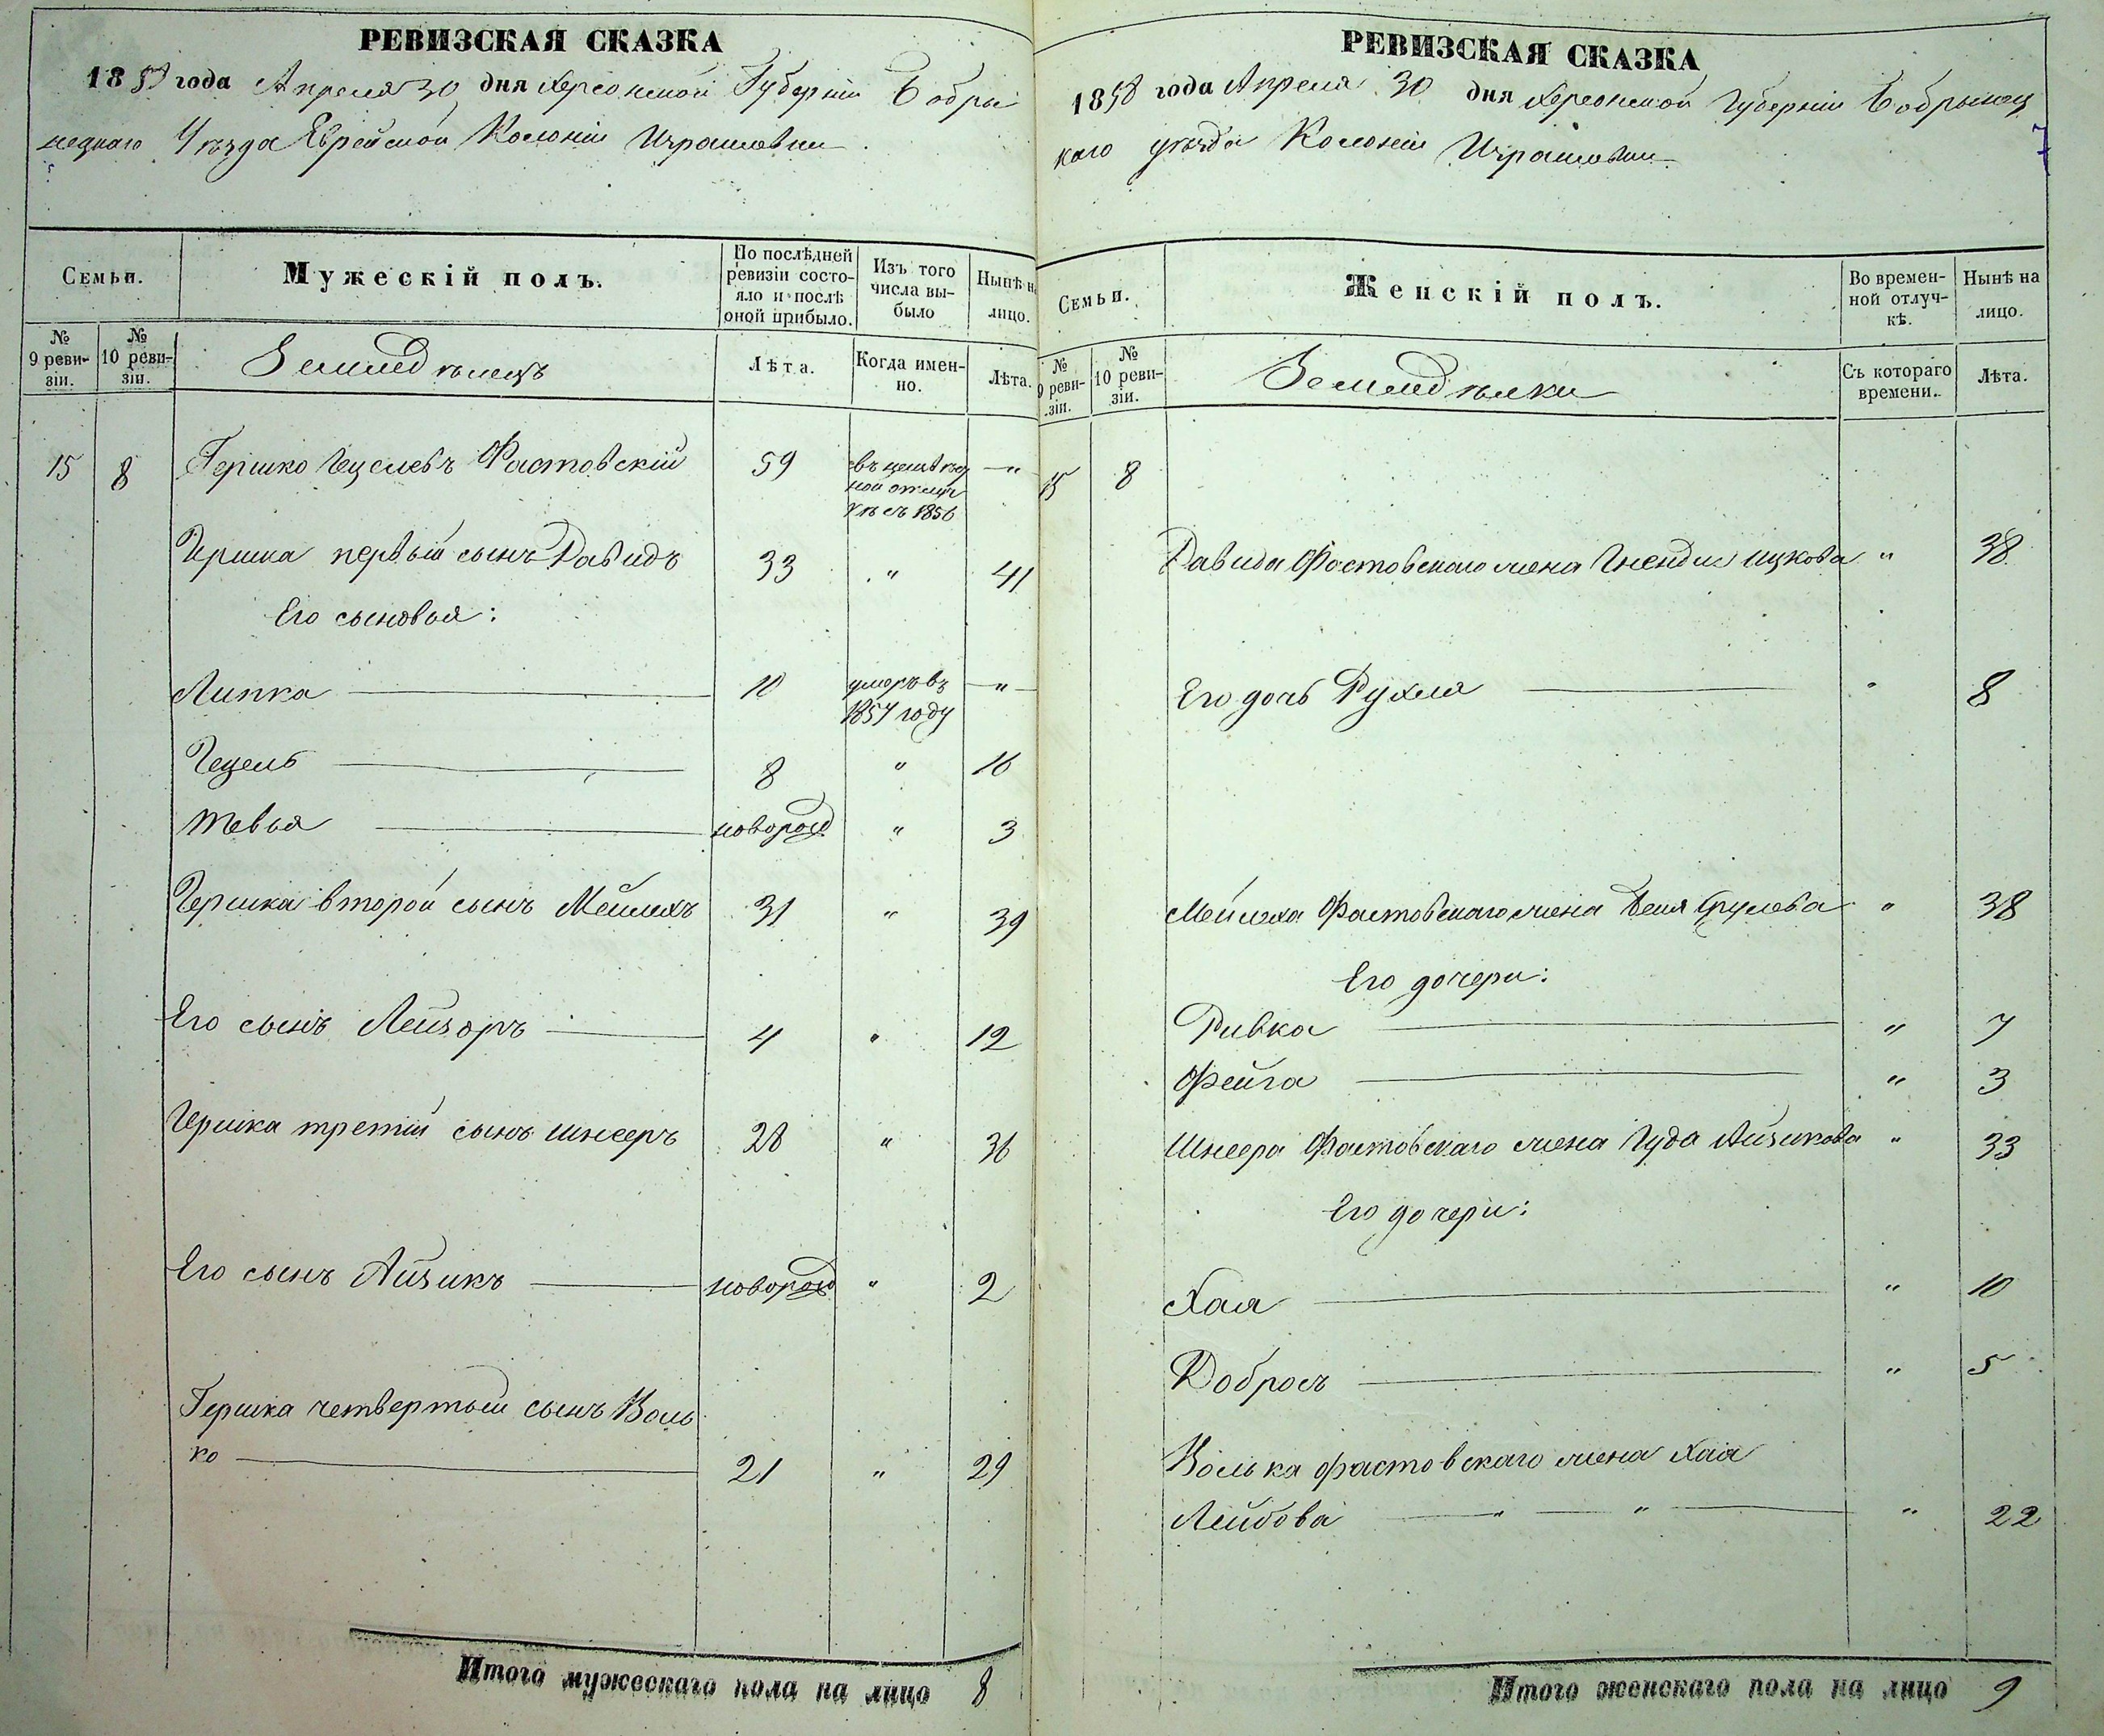 РЕВИЗСКАЯ СКАЗКА
1858 года Апреля 30 дня Херсонской Губерніи Бобры
нецкаго Уѣзда Еврейской Колоніи Израилевки
Семьи.
Мужескій полъ.
По послѣдней ревизіи состояло и послѣ оной прибыло.
Изъ того числа выбыло
Нынѣ на лицо.
№ 9 ревизіи.
№ 10 ревизіи.
Земледѣлецъ
Лѣта.
Когда именно.
Лѣта.
15 8 Гершко Гецелевъ Фастовскій 59 —"
кѣ съ 1856
Гершка первый сынъ Давидъ 33 " 41
Его сыновья:
Липка 10 умеръ въ —"—
1857 году
Гецель 8 " 16
Тевья новорожд " 3
Гершка второй сынъ Мейлехъ 31 " 39
Его сынъ Лейзоръ 4 " 12
Гершка третій сынъ Шнееръ 28 " 36
Его сынъ Айзикъ новорожд " 2
Гершка четвертый сынъ Воль
ко 21 " 29
Итого мужескаго пола на лицо 8
РЕВИЗСКАЯ СКАЗКА
1858 года Апреля 30 дня Херсонской Губерніи Бобрынец
каго уѣзда Колоніи Израилевки
7
Семьи.
Женскій полъ.
Во временной отлучкѣ.
Нынѣ на лицо.
№ 9 ревизіи.
№ 10 ревизіи.
Земледѣлки
Съ котораго времени.
Лѣта.
15 8
Давида Фастовскаго жена Гнендля Ицкова " 38
Его дочь Рухля " 8
Мейлеха Фастовскаго жена Срулева " 38
Его дочери:
Ривка " 7
Фейга " 3
Шнеера Фастовскаго жена Гуда Айзикова " 33
Его дочери:
Хая " 10
Добрось " 5
Волька Фастовскаго жена Хая
Лейбова " " " 22
Итого женскаго пола на лицо 9